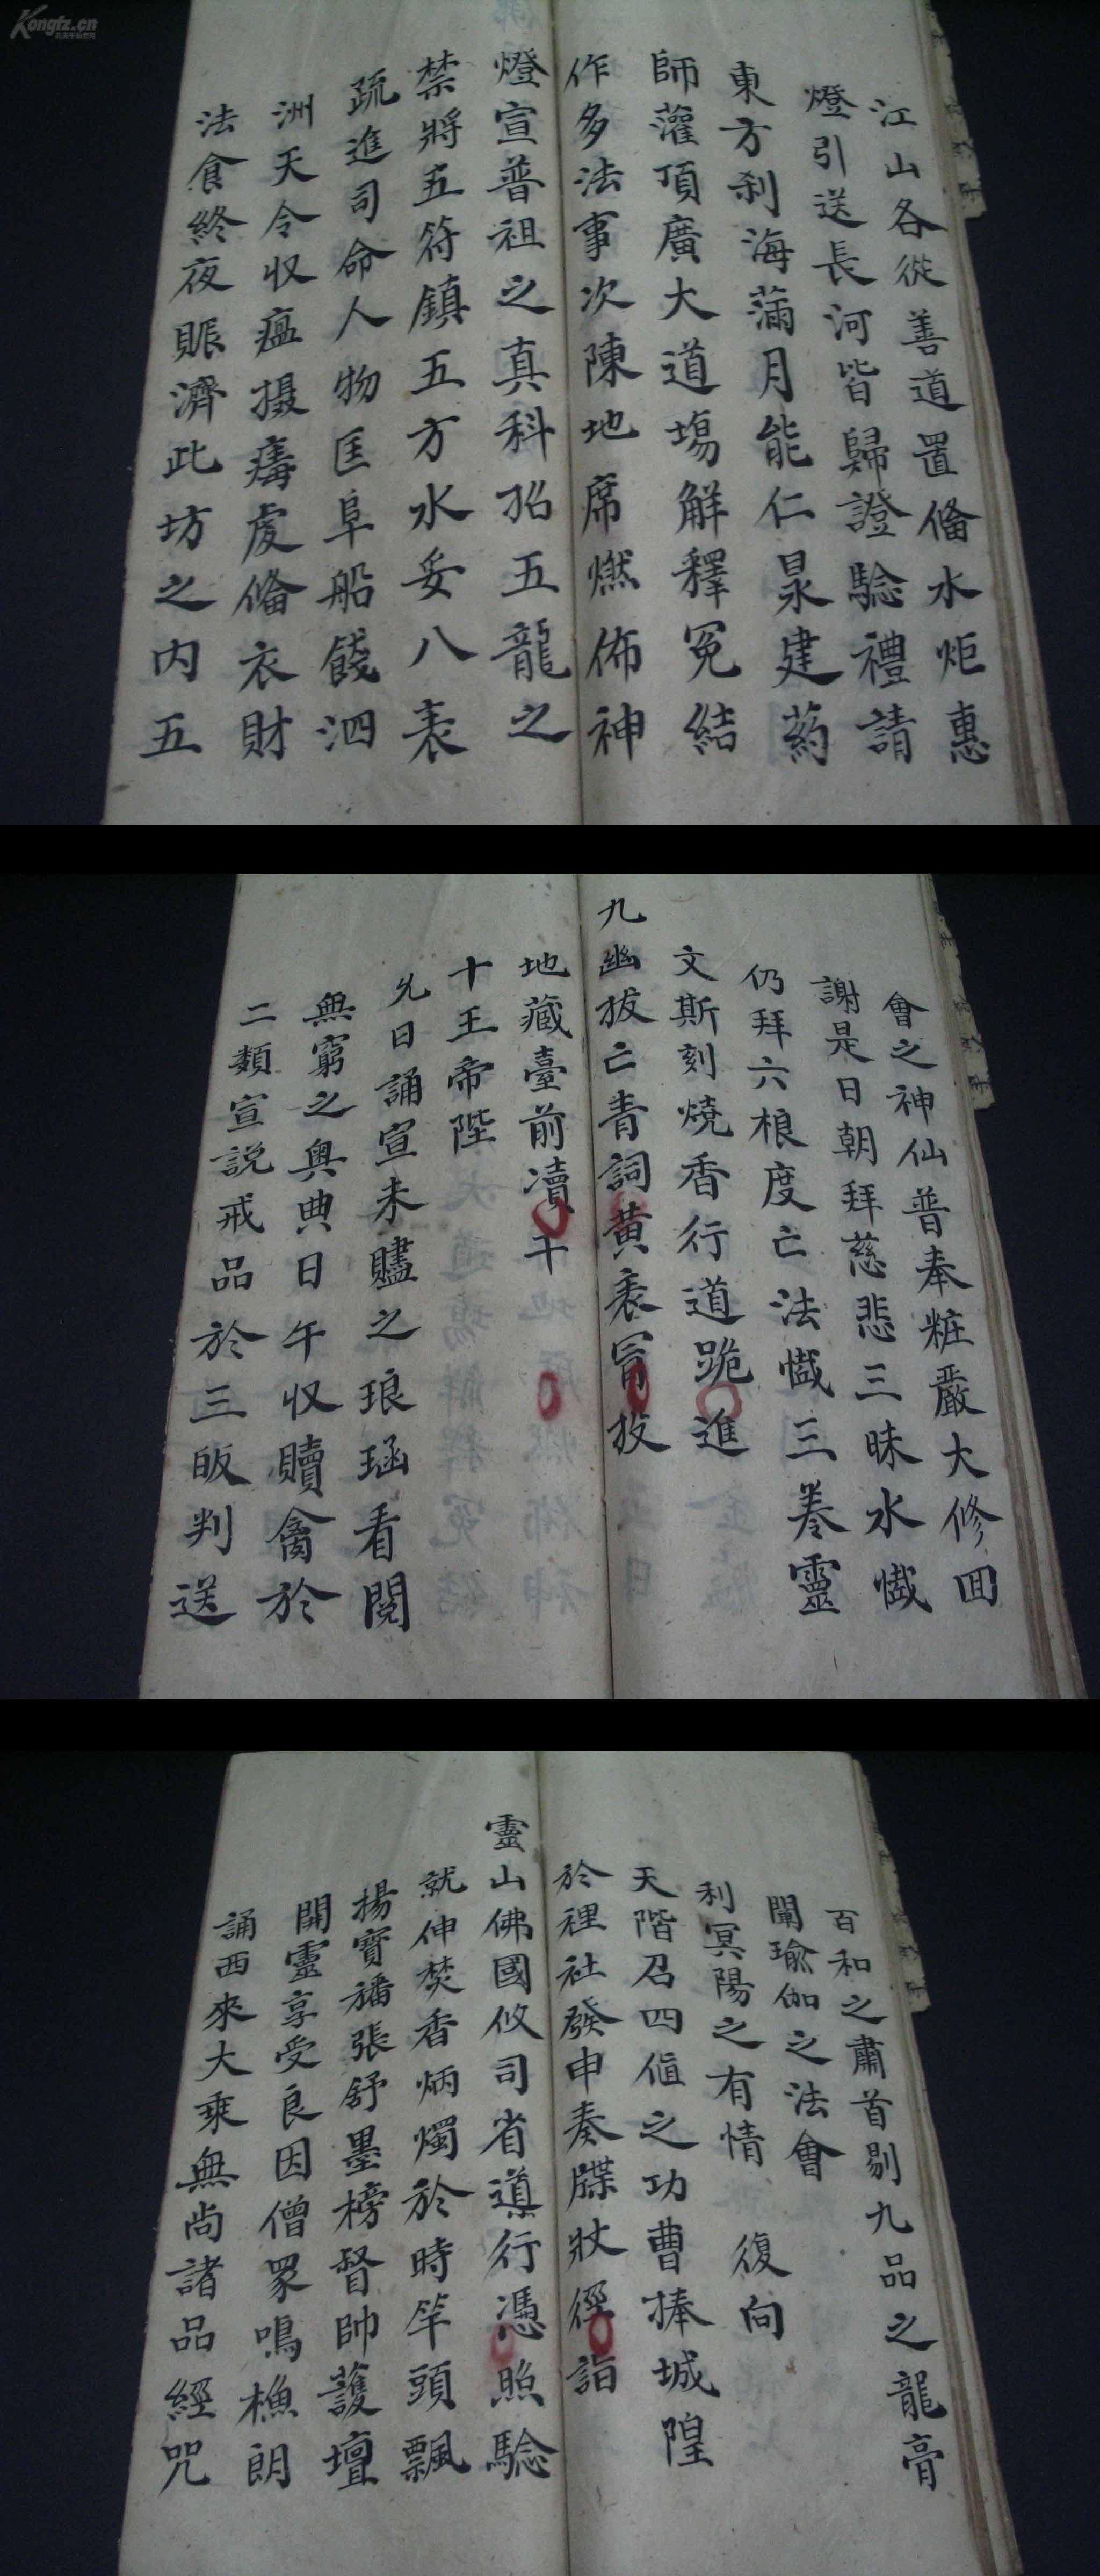 Kongfz.cn
江山各從善道置俻水炬惠
燈引送長河皆歸證驗禮請
東方刹海蒲月能仁杲建葯
師灌頂廣大道塲解釋冤結
作多法事次陳地席燃佈神
燈宣普祖之真科招五龍之
禁將五符鎮五方水妥八表
疏進司命人物匡阜船餞泗
洲天令収瘟摄痗處俻衣財
法食終夜賑濟此坊之内五
會之神仙普奉粧嚴大修囬
謝是日朝拜慈悲三昧水懴
仍拜六根度亡法懴三卷靈
文斯刻燒香行道跪進
九幽拔亡青詞黄表冐投
地藏臺前凟干
十王帝陛
允日誦宣未贐之琅函看閱
無窮之奥典日午収贖禽於
二類宣説戒品於三皈判送
百和之肅首剔九品之龍膏
闡瑜伽之法會
利冥陽之有情 復向
天階召四值之功曹捧城隍
於裡社發申奏牒狀徑詣
靈山佛國攸司省道行憑照驗
就伸焚香炳燭於時竿頭飄
揚寶旛張舒墨榜督帥護壇
開靈享受良因僧眾鳴樵朗
誦西來大乘無尚諸品經咒